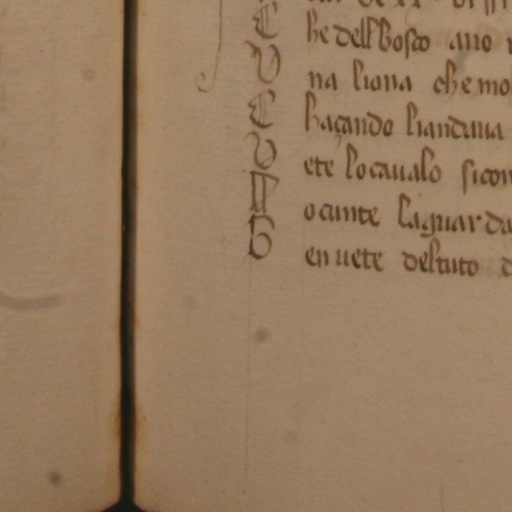 C he dell bosco ano
V na liona che mo
C haçando li andaua
V ete lo caualo si con
N o cunte la guarda
B en uete del tuto d